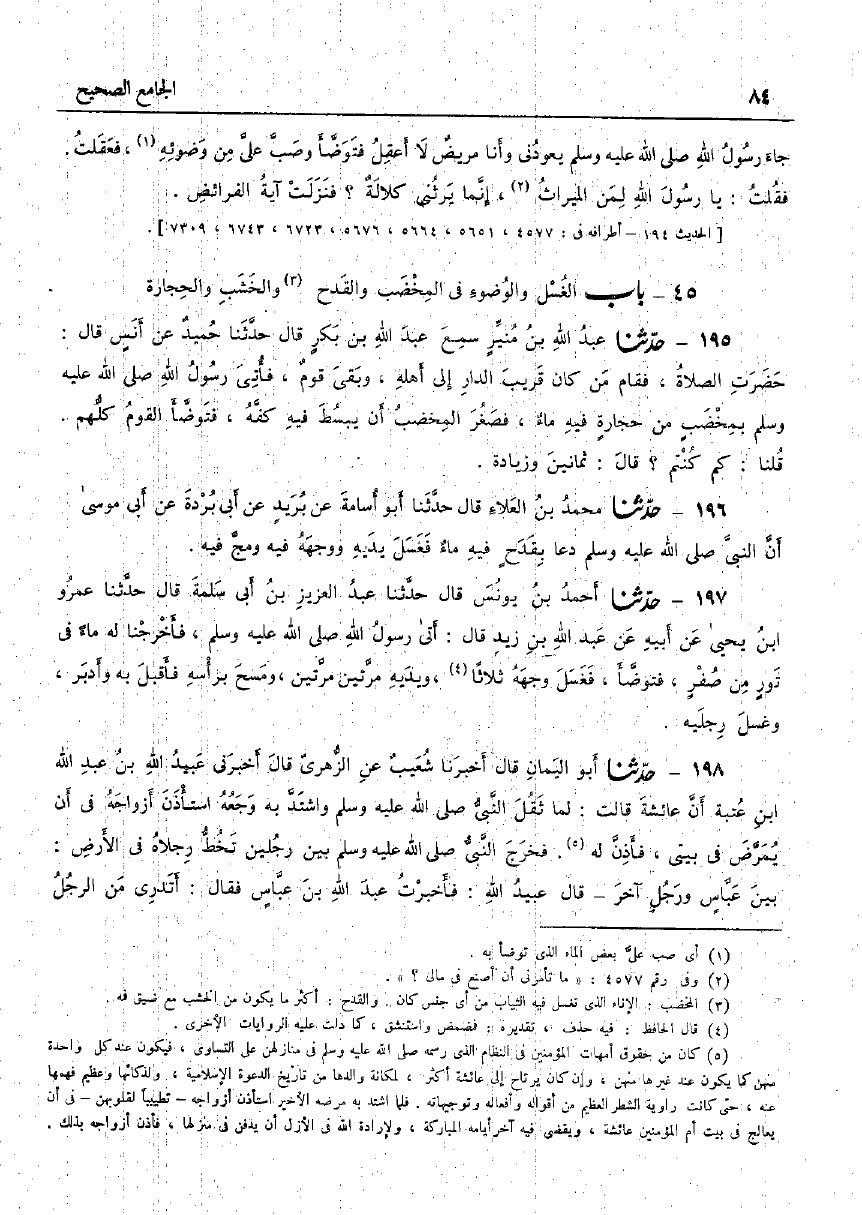 ٨٤ الجامع الصحيح
جاءَ رسُولُ اللهِ صلى الله عليه وسلم يعودُنى وأنا مريضٌ لَا أَعقِلُ فتَوَضَّأَ وصَبَّ علىَّ مِن وَضوئِهِ (١) ، فعَقَلتُ .
فقُلتُ : يا رسُولَ اللهِ لِمَن الميراثُ (٢) ، إنَّما يَرثُنِي كلالَةٌ ؟ فنَزَلَتْ آيةُ الفرائضِ .
[ الحديث ١٩٤ – أطرافه فى : ٤٥٧٧ ، ٥٦٥١ ، ٥٦٦٤ ، ٥٦٧٦ ، ٦٧٢٣ ، ٦٧٤٣ ، ٧٣٠٩ ] .
٤٥ – باب الغُسْلِ والوُضوءِ فى المِخْضَبِ والقَدحِ (٣) والخَشَبِ والحِجارَة
١٩٥ – حدّثنا عبدُ اللهِ بنُ مُنيرٍ سمِعَ عبدَ اللهِ بن بَكرٍ قال حدَّثَنا حُميدٌ عن أَنَسٍ قال :
حَضَرَتِ الصلاةُ ، فقام مَن كان قَريبَ الدارِ إلى أهلهِ ، وبَقىَ قومٌ ، فأُتِىَ رسُولُ اللهِ صلى الله عليه
وسلم بمِخْضَبٍ من حجارةٍ فيهِ ماءٌ ، فصَغُرَ المِخضبُ أن يبسُطَ فيهِ كفَّهُ ، فتَوضَّأَ القومُ كلُّهم .
قُلنا : كم كُنْتم ؟ قالَ : ثمانينَ وزيادة .
١٩٦ – حدّثنا محمدُ بنُ العَلاءِ قال حدَّثَنا أبو أُسامةَ عن بُرَيدٍ عن أَبى بُرْدةَ عن أَبى موسىٰ
أَنَّ النبىَّ صلى الله عليه وسلم دعا بِقَدَحٍ فيهِ ماءٌ فَغَسَلَ يدَيهِ ووجهَهُ فيه ومجَّ فيه .
١٩٧ – حدّثنا أحمدُ بنُ يونُسَ قال حدَّثنا عبدُ العزيزِ بنُ أبى سَلمةَ قال حدَّثنا عمرُو
ابنُ يحيىٰ عَن أَبيهِ عَن عَبد اللهِ بنِ زيدٍ قال : أَتىٰ رسولُ اللهِ صلى الله عليه وسلم ، فأخْرجْنا له ماءً فى
تَورٍ مِن صُفْرٍ ، فتوضَّأَ ، فَغَسَلَ وجهَهُ ثلاثًا (٤) ، ويدَيهِ مرَّتين مرَّتين ، ومَسحَ برأْسهِ فأَقبلَ به وأَدبَر ،
وغسلَ رِجليه .
١٩٨ – حدّثنا أبو اليَمانِ قال أخبرَنا شُعَيبٌ عنِ الزُّهرىّ قالَ أخبرَنى عُبيدُ اللهِ بنُ عبدِ الله
ابنِ عُتبة أَنَّ عائشةَ قالت : لما ثَقُلَ النَّبىُّ صلى الله عليه وسلم واشتَدَّ به وَجَعُهُ استأْذَنَ أَزواجَهُ فى أَن
يُمَرَّضَ فى بيتى ، فأَذِنَّ له (٥) . فخرَجَ النَّبىُّ صلى الله عليه وسلم بين رجُلين تَخُطُّ رِجلاهُ فى الأَرضِ :
بينَ عَبَّاسٍ ورَجُلٍ آخرَ – قال عبيدُ اللهِ : فأَخبرْتُ عبدَ اللهِ بنَ عبَّاسٍ فقال : أَتَدرِى مَن الرجُلُ
(١) أى صب علىَّ بعض الماء الذى توضأ به .
(٢) وفى رقم ٤٥٧٧ : « ما تأمرنى أن أصنع فى مالى ؟ » .
(٣) المخضب : الإناء الذى تغسل فيه الثياب من أى جنس كان . والقدح : أكثر ما يكون من الخشب مع ضيق فه .
(٤) قال الحافظ : فيه حذف ، تقديره : فضمض واستنشق ، كما دلت عليه الروايات الأخرى .
(٥) كان من حقوق أمهات المؤمنين فى النظام الذى رسمه صلى الله عليه وسلم فى منازلهن على التساوى ، فيكون عند كل واحدة
منهن كما يكون عند غيرها منهن ، وإن كان يرتاح إلى عائشة أكثر ، لمكانة والدها من تاريخ الدعوة الإسلامية ، ولذكائها وعظيم فهمها
عنه ، حتى كانت راوية الشطر العظيم من أقواله وأفعاله وتوجيهاته . فلما اشتد به مرضه الأخير استأذن أزواجه – تطييباً لقلوبهن – فى أن
يعالج فى بيت أم المؤمنين عائشة ، ويقضى فيه آخر أيامه المباركة ، ولإرادة الله فى الأزل أن يدفن فى منزلها ، فأذن أزواجه بذلك .